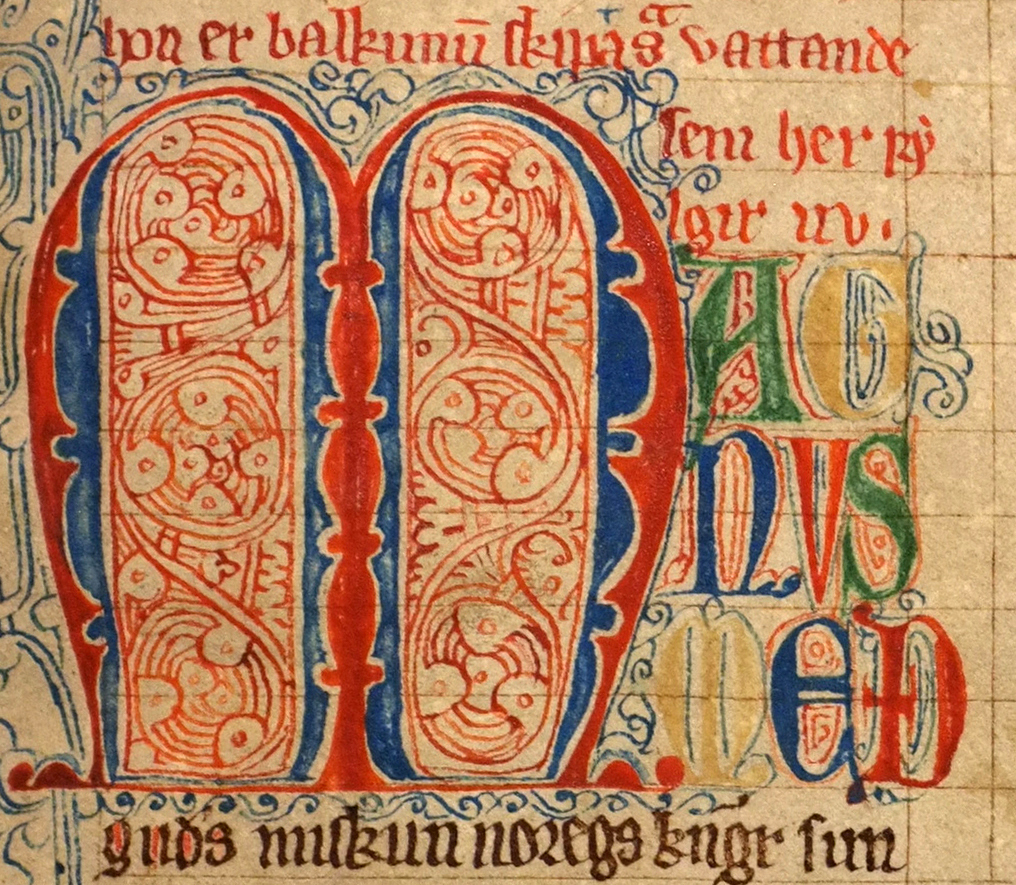 hon er balkunū skipā sᵃ vattande
sem her fy
lgir uv.
MAG
NVS
MED
guds miskun noregs kn̄gr sun